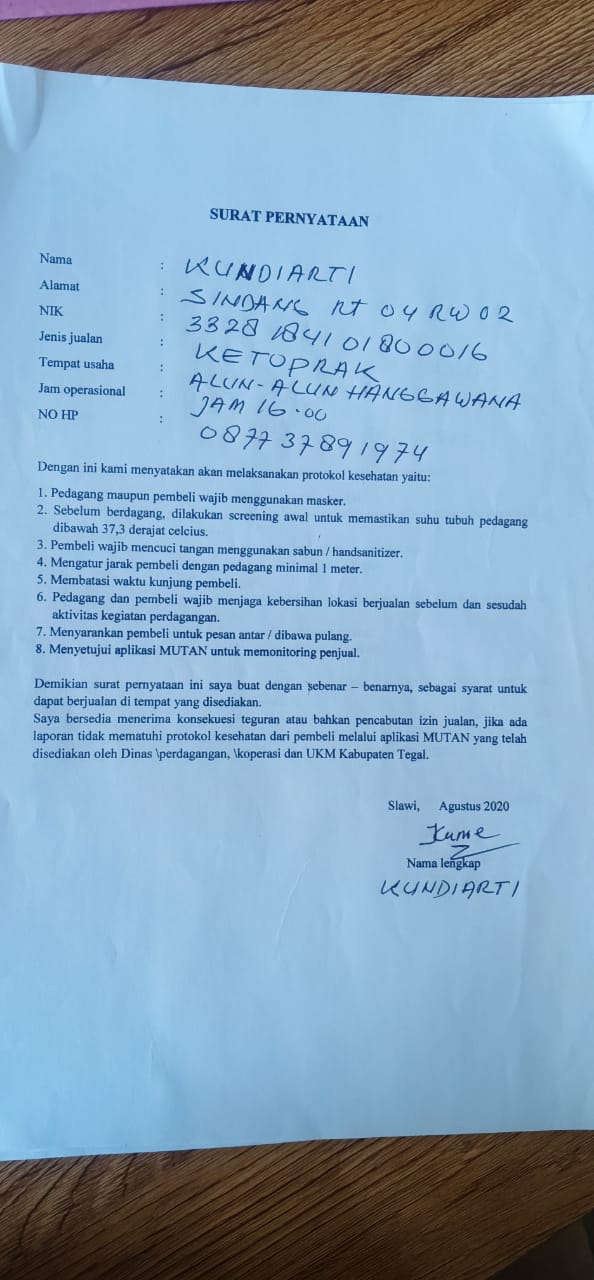 SURAT PERNYATAAN
Nama : KUNDIARTI
Alamat : SINDANG Rt 04 RW 02
NIK : 3328184101800016
Jenis jualan : KETOPRAK
Tempat usaha : ALUN-ALUN HANGGAWANA
Jam operasional : JAM 16.00
NO HP : 087737891974
Dengan ini kami menyatakan akan melaksanakan protokol kesehatan yaitu:
1. Pedagang maupun pembeli wajib menggunakan masker.
2. Sebelum berdagang, dilakukan screening awal untuk memastikan suhu tubuh pedagang
dibawah 37,3 derajat celcius.
3. Pembeli wajib mencuci tangan menggunakan sabun / handsanitizer.
4. Mengatur jarak pembeli dengan pedagang minimal 1 meter.
5. Membatasi waktu kunjung pembeli.
6. Pedagang dan pembeli wajib menjaga kebersihan lokasi berjualan sebelum dan sesudah
aktivitas kegiatan perdagangan.
7. Menyarankan pembeli untuk pesan antar / dibawa pulang.
8. Menyetujui aplikasi MUTAN untuk memonitoring penjual.
Demikian surat pernyataan ini saya buat dengan sebenar – benarnya, sebagai syarat untuk
dapat berjualan di tempat yang disediakan.
Saya bersedia menerima konsekuesi teguran atau bahkan pencabutan izin jualan, jika ada
laporan tidak mematuhi protokol kesehatan dari pembeli melalui aplikasi MUTAN yang telah
disediakan oleh Dinas \perdagangan, \koperasi dan UKM Kabupaten Tegal.
Slawi, Agustus 2020
Nama lengkap
KUNDIARTI